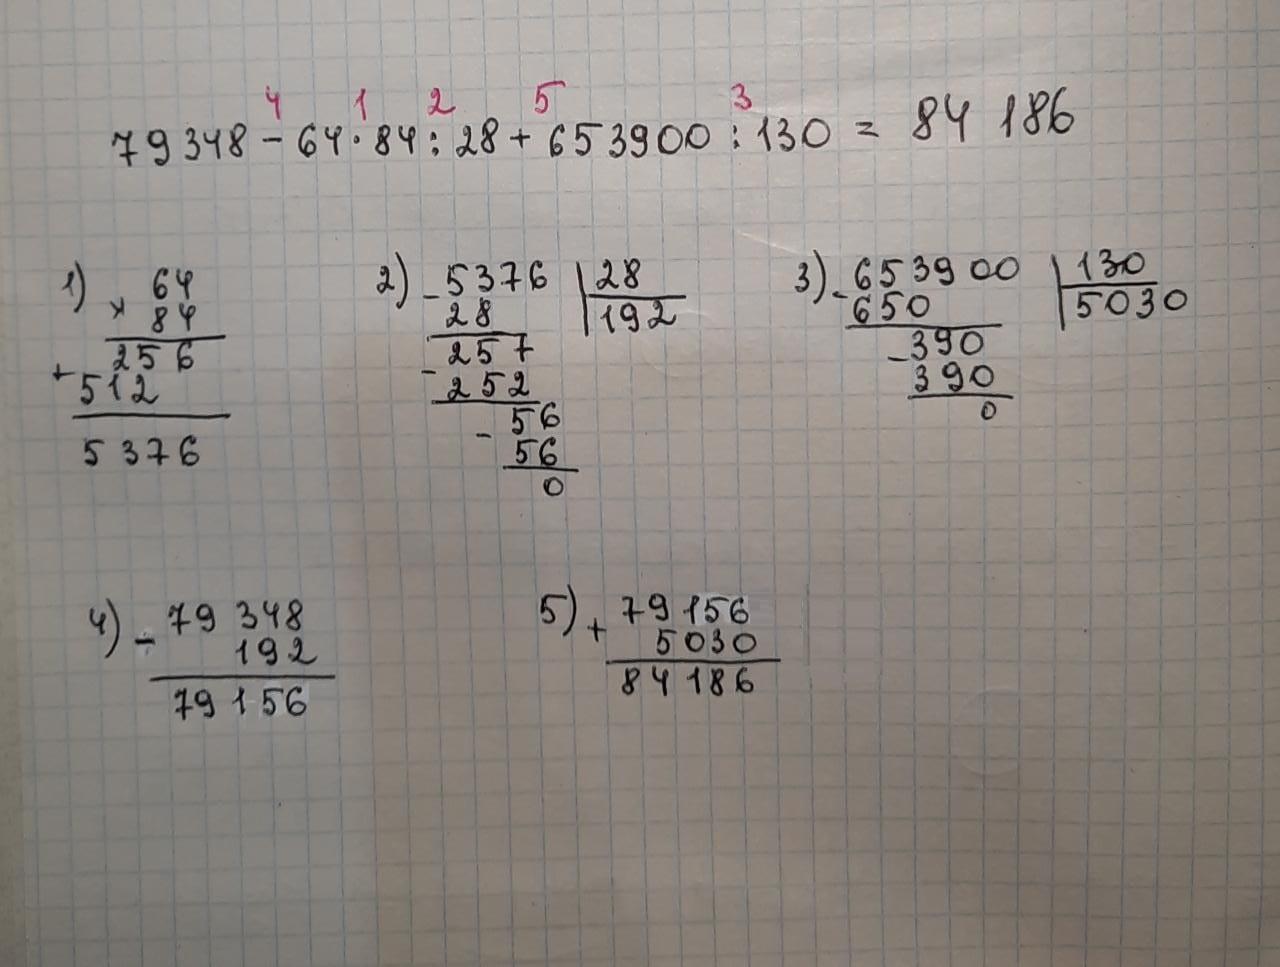 4 1 2 5 3
79348 - 64 · 84 : 28 + 653900 : 130 = 84 186
1) 64
× 84
256
+ 512
5376
2) - 5376 | 28
28 | 192
257
- 252
56
- 56
0
3) - 653900 | 130
650 | 5030
- 390
390
0
4) - 79 348
192
79 156
5) + 79 156
5030
84 186